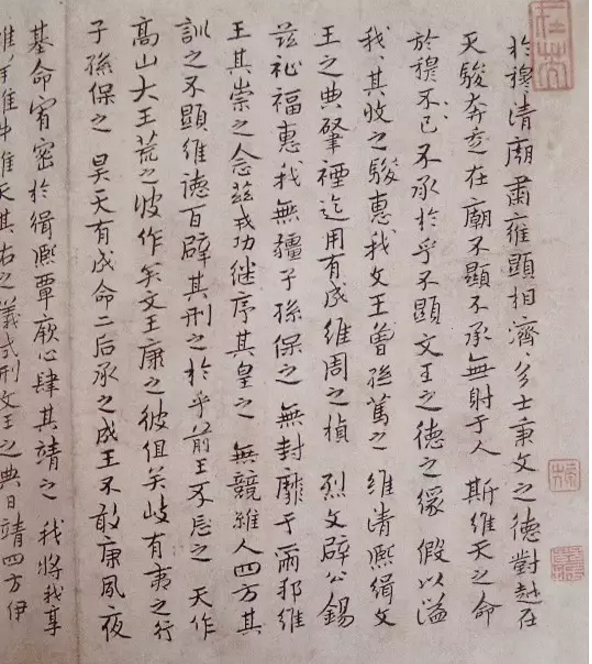 於穆清廟肅雍顯相濟〻多士秉文之德對越在
天駿奔走在廟不顯不承無射于人 斯維天之命
於穆不已不承於乎不顯文王之德之 假以溢
我〻其收之駿惠我文王曾孫篤之 維清熙緝文
王之典肇禋迄用有成維周之楨 烈文辟公錫
茲祉福惠我無疆子孫保之 無封靡于爾邦維
王其崇之念茲戎功继序其皇之 無競維人四方其
訓之不顯維德百辟其刑之於乎前王不忘之 天作
高山大王荒之彼作矣文王康之彼徂矣岐有夷之行
子孫保之 昊天有成命二后承之成王不敢康夙夜
基命宥密於緝熙單厥心肆其靖之 我將我享
維羊維牛維天其右之儀式刑文王之典日靖四方伊